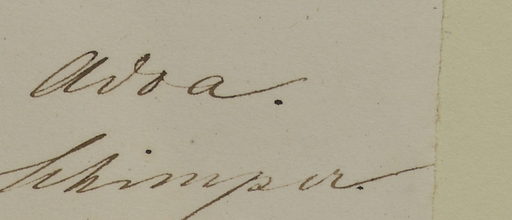 Adoa.
Schimper.